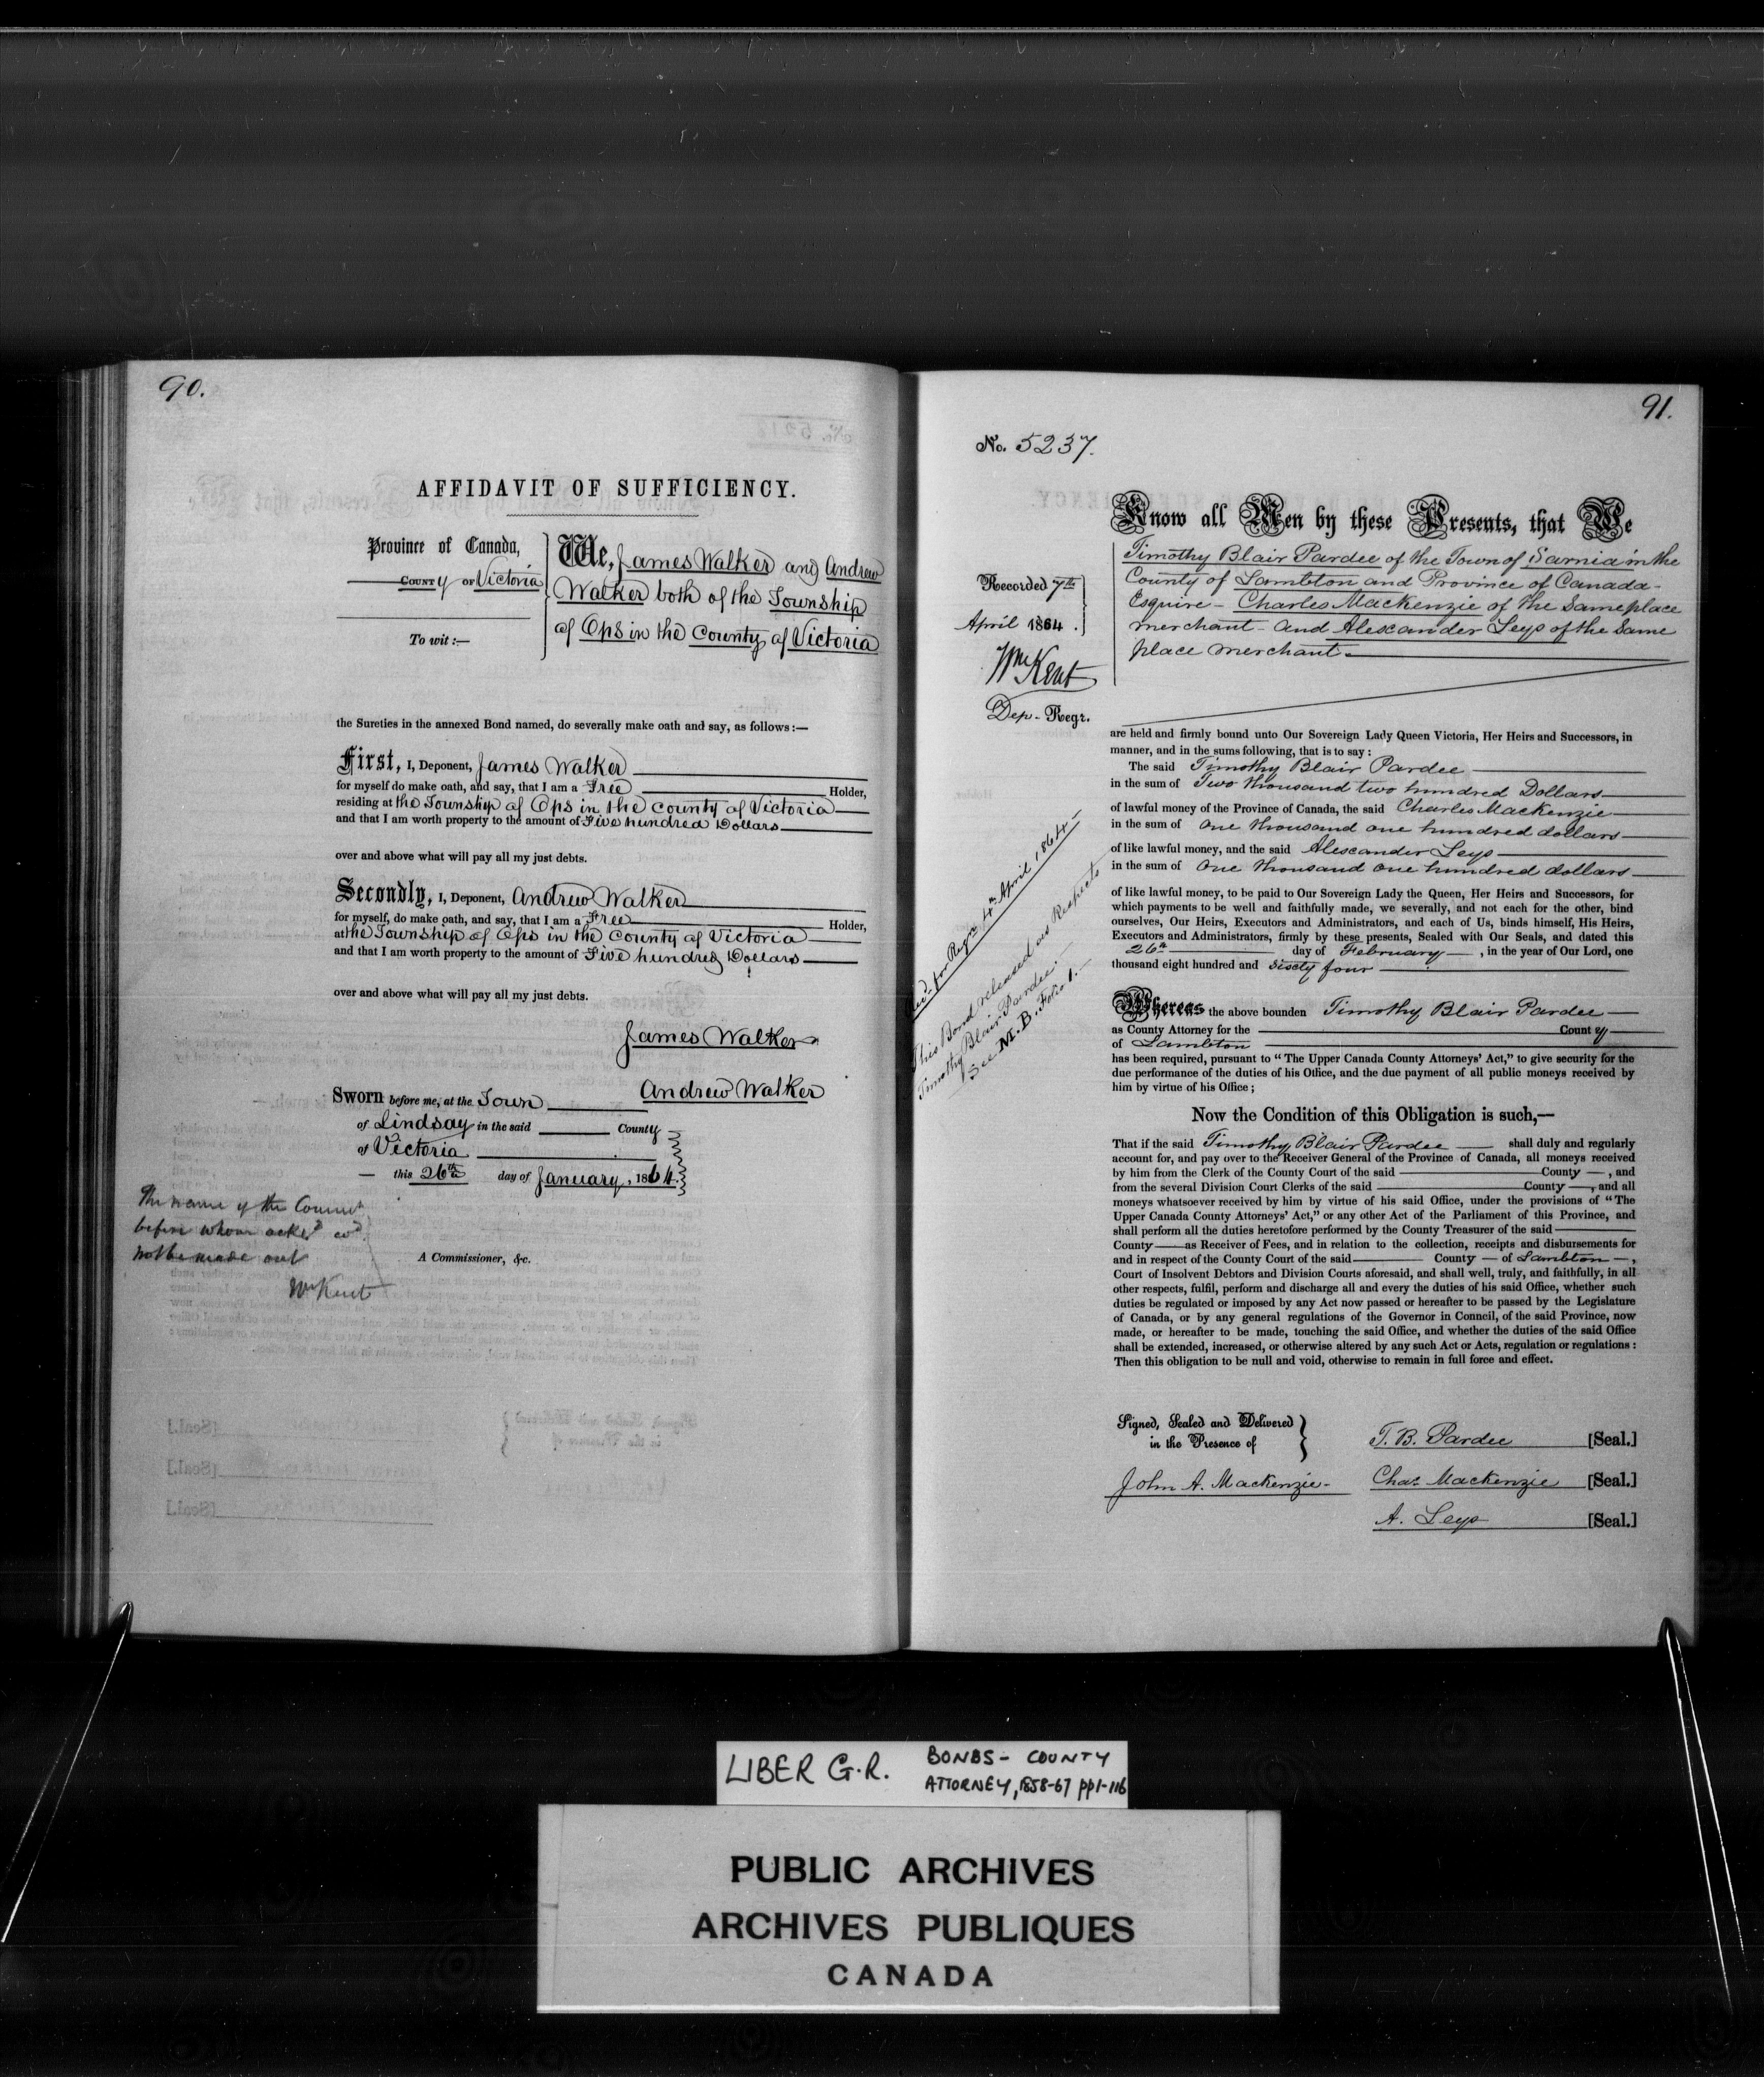 90.
AFFIDAVIT OF SUFFICIENCY.
Province of Canada,
County of Victoria
To wit:—
We, James Walker and Andrew
Walker both of the Township
of Ops in the County of Victoria
the Sureties in the annexed Bond named, do severally make oath and say, as follows:—
First, I, Deponent, James Walker
for myself do make oath, and say, that I am a Free Holder,
residing at the Township of Ops in the County of Victoria
and that I am worth property to the amount of Five hundred Dollars
over and above what will pay all my just debts.
Secondly, I, Deponent, Andrew Walker
for myself, do make oath, and say, that I am a Free Holder,
at the Township of Ops in the County of Victoria
and that I am worth property to the amount of Five hundred Dollars
over and above what will pay all my just debts.
James Walker
Andrew Walker
Sworn before me, at the Town
of Lindsay in the said County
of Victoria
this 26th day of January, 1864.
The name of the
before whom
not be made out
Wm Kent
A Commissioner, &c.
91.
No. 5237.
Recorded 7th
April 1864.
Wm Kent
Dep- Regr.
Know all Men by these Presents, that We
Timothy Blair Pardee of the Town of Sarnia in the
County of Lambton and Province of Canada-
Esquire- Charles Mackenzie of the Same place
merchant- and Alexander Leys of the Same
place merchant-
are held and firmly bound unto Our Sovereign Lady Queen Victoria, Her Heirs and Successors, in
manner, and in the sums following, that is to say:
The said Timothy Blair Pardee
in the sum of Two thousand two hundred Dollars
of lawful money of the Province of Canada, the said Charles Mackenzie
in the sum of one thousand one hundred dollars
of like lawful money, and the said Alexander Leys
in the sum of One thousand one hundred dollars
of like lawful money, to be paid to Our Sovereign Lady the Queen, Her Heirs and Successors, for
which payments to be well and faithfully made, we severally, and not each for the other, bind
ourselves, Our Heirs, Executors and Administrators, and each of Us, binds himself, His Heirs,
Executors and Administrators, firmly by these presents, Sealed with Our Seals, and dated this
26th day of February, in the year of Our Lord, one
thousand eight hundred and sixty four
Recd for Regn 4th April 1864-
This Bond released as Respects
Timothy Blair Pardee.
See M.B. Folio 1.-
Whereas the above bounden Timothy Blair Pardee
as County Attorney for the County
of Lambton
has been required, pursuant to "The Upper Canada County Attorneys' Act," to give security for the
due performance of the duties of his Office, and the due payment of all public moneys received by
him by virtue of his Office;
Now the Condition of this Obligation is such,—
That if the said Timothy Blair Pardee shall duly and regularly
account for, and pay over to the Receiver General of the Province of Canada, all moneys received
by him from the Clerk of the County Court of the said County, and
from the several Division Court Clerks of the said County, and all
moneys whatsoever received by him by virtue of his said Office, under the provisions of "The
Upper Canada County Attorneys' Act," or any other Act of the Parliament of this Province, and
shall perform all the duties heretofore performed by the County Treasurer of the said
County as Receiver of Fees, and in relation to the collection, receipts and disbursements for
and in respect of the County Court of the said County of Lambton,
Court of Insolvent Debtors and Division Courts aforesaid, and shall well, truly, and faithfully, in all
other respects, fulfil, perform and discharge all and every the duties of his said Office, whether such
duties be regulated or imposed by any Act now passed or hereafter to be passed by the Legislature
of Canada, or by any general regulations of the Governor in Conncil, of the said Province, now
made, or hereafter to be made, touching the said Office, and whether the duties of the said Office
shall be extended, increased, or otherwise altered by any such Act or Acts, regulation or regulations:
Then this obligation to be null and void, otherwise to remain in full force and effect.
Signed, Sealed and Delivered
in the Presence of
John A. Mackenzie-
T. B. Pardee [Seal.]
Chas. Mackenzie [Seal.]
A. Leys [Seal.]
LIBER G.R. BONDS- COUNTY
ATTORNEY, 1858-67 pp1-116
PUBLIC ARCHIVES
ARCHIVES PUBLIQUES
CANADA